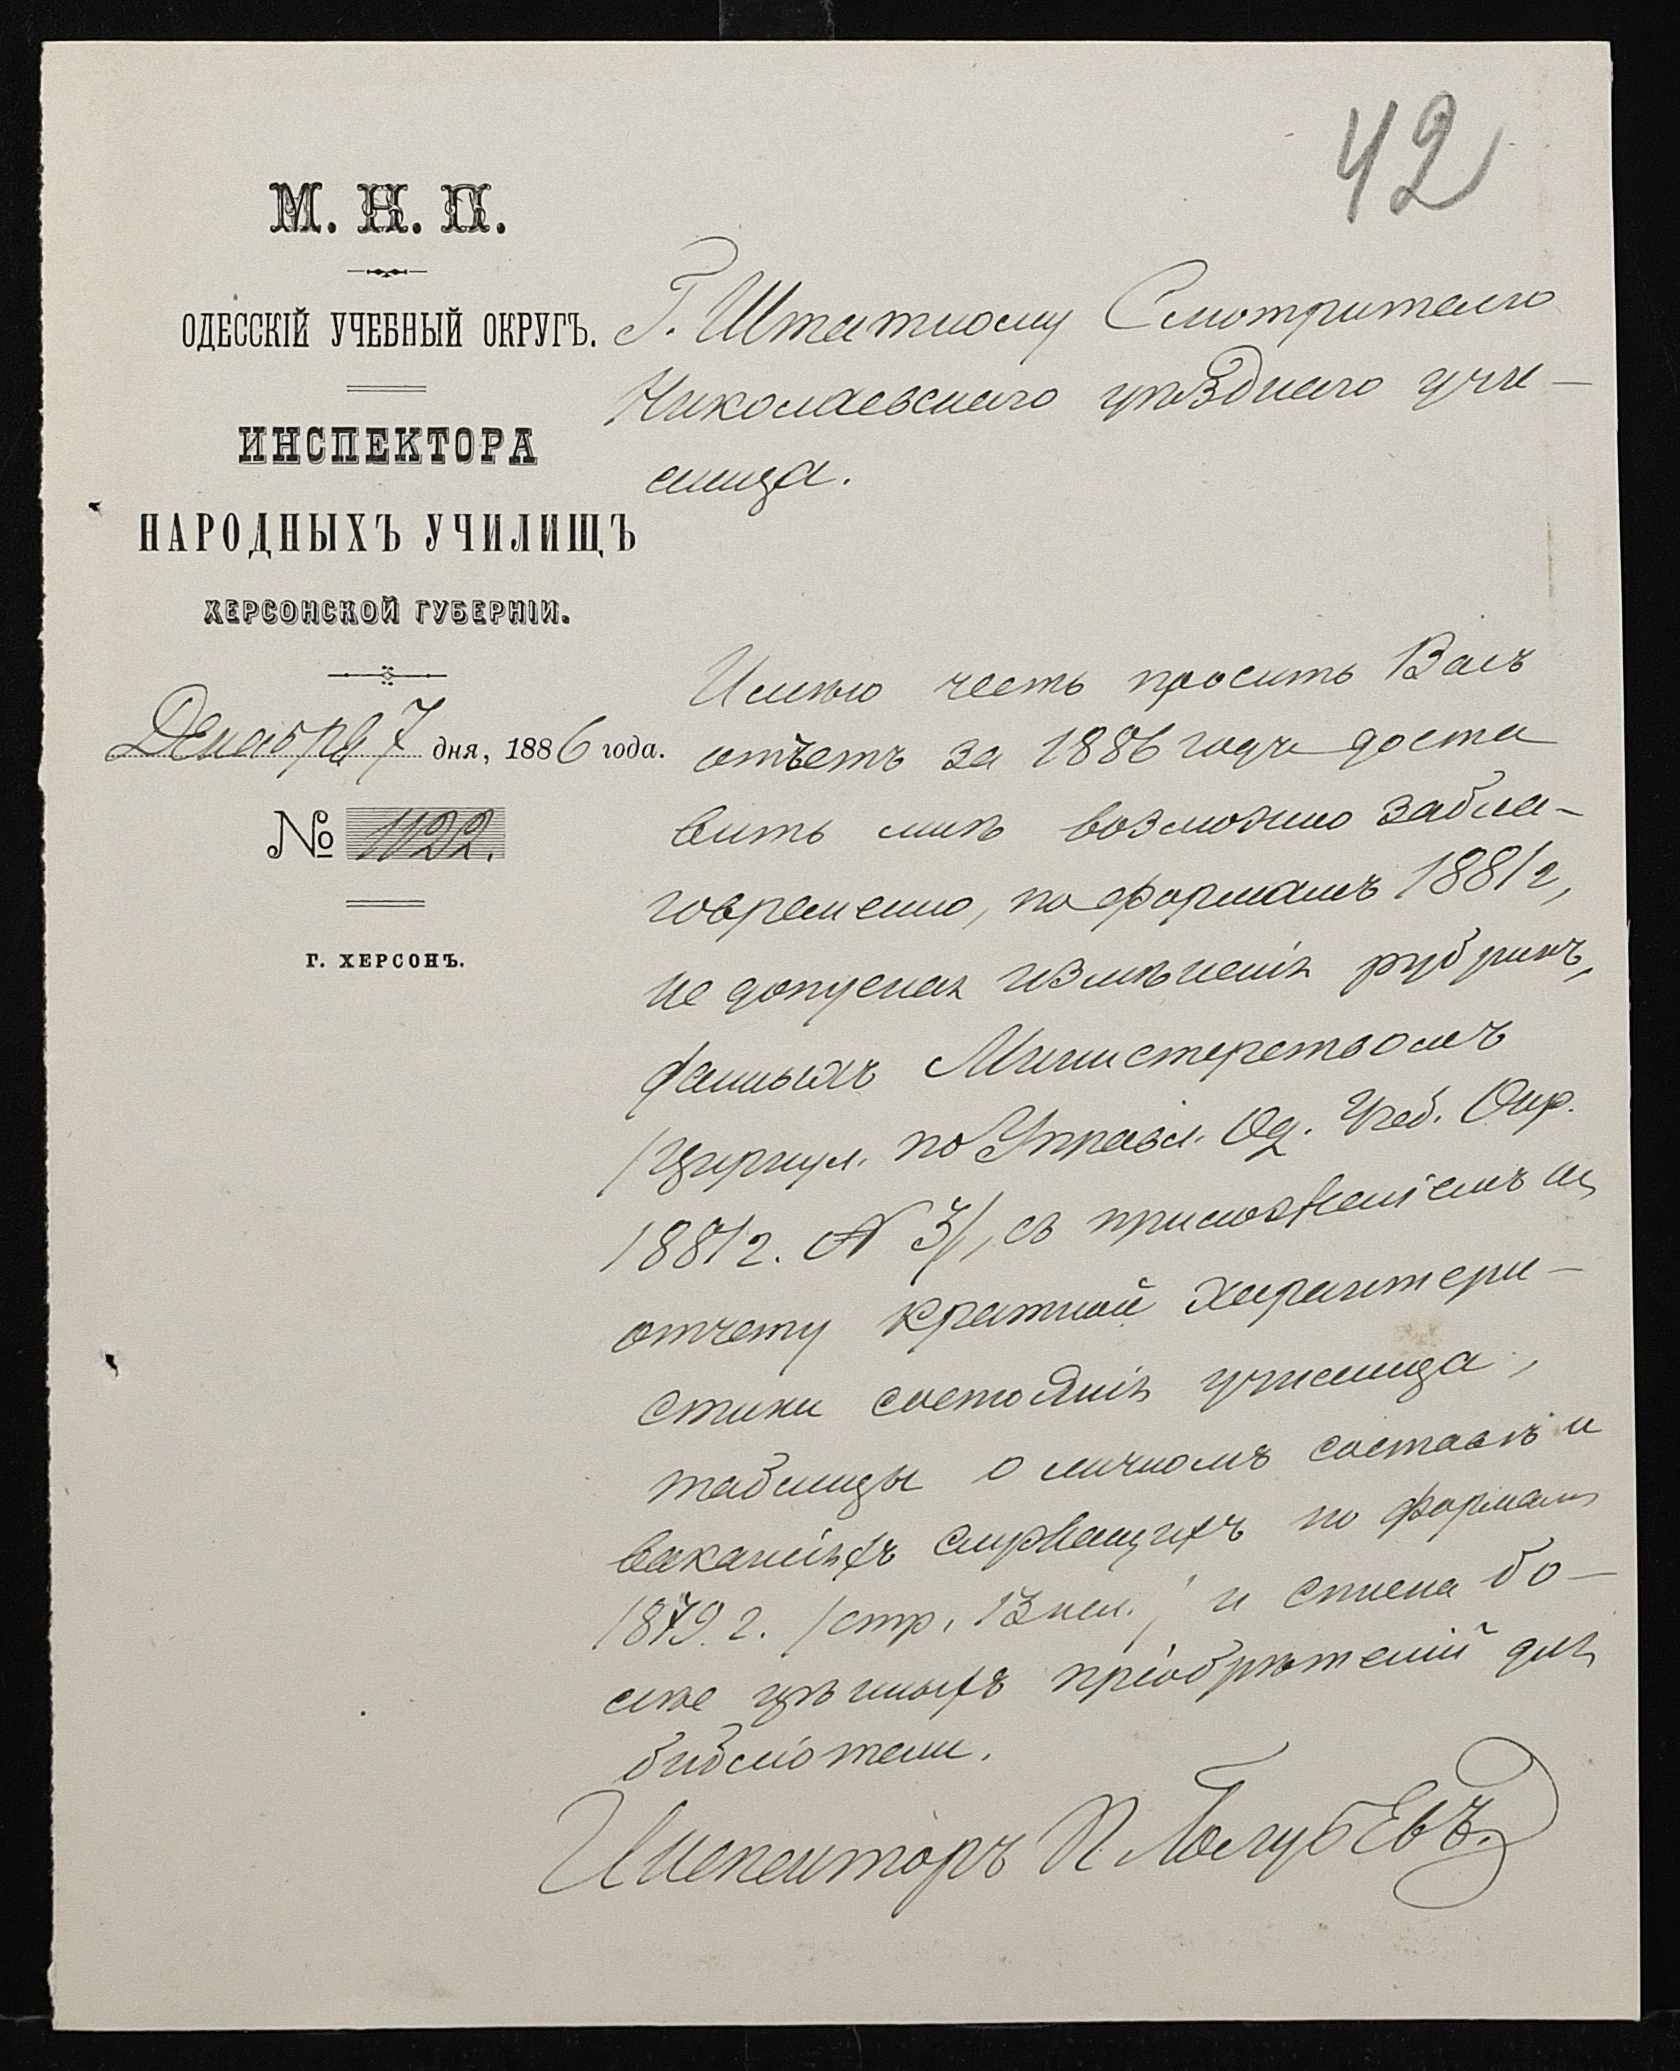 42
М. Н. П.
ОДЕССКІЙ УЧЕБНЫЙ ОКРУГЪ.
ИНСПЕКТОРА
НАРОДНЫХЪ УЧИЛИЩЪ
ХЕРСОНСКОЙ ГУБЕРНІИ.
Декабря 7 дня, 1886 года.
№ 1122.
Г. ХЕРСОНЪ.
Г. Штатному Смотрителю
Николаевскаго уѣзднаго учи-
лища.
Имѣю честь просить Васъ
отчетъ за 1886 годъ доста
вить мнѣ возможно забла-
говременно, по формамъ 1881 г,
не допуская измѣненія рубрикъ,
данныхъ Министерствомъ
/Циркул. по Управл. Од. Учеб. Окр.
1881 г. № 3/, съ приложеніемъ къ
отчету краткой характери-
стики состоянія училища,
таблицы о личномъ составѣ и
вакансіяхъ служащихъ по формам
1879 г. /стр. 13 и списка бо-
лѣе цѣнныхъ пріобрѣтеній для
библіотеки.
Инспекторъ П Голубевъ.